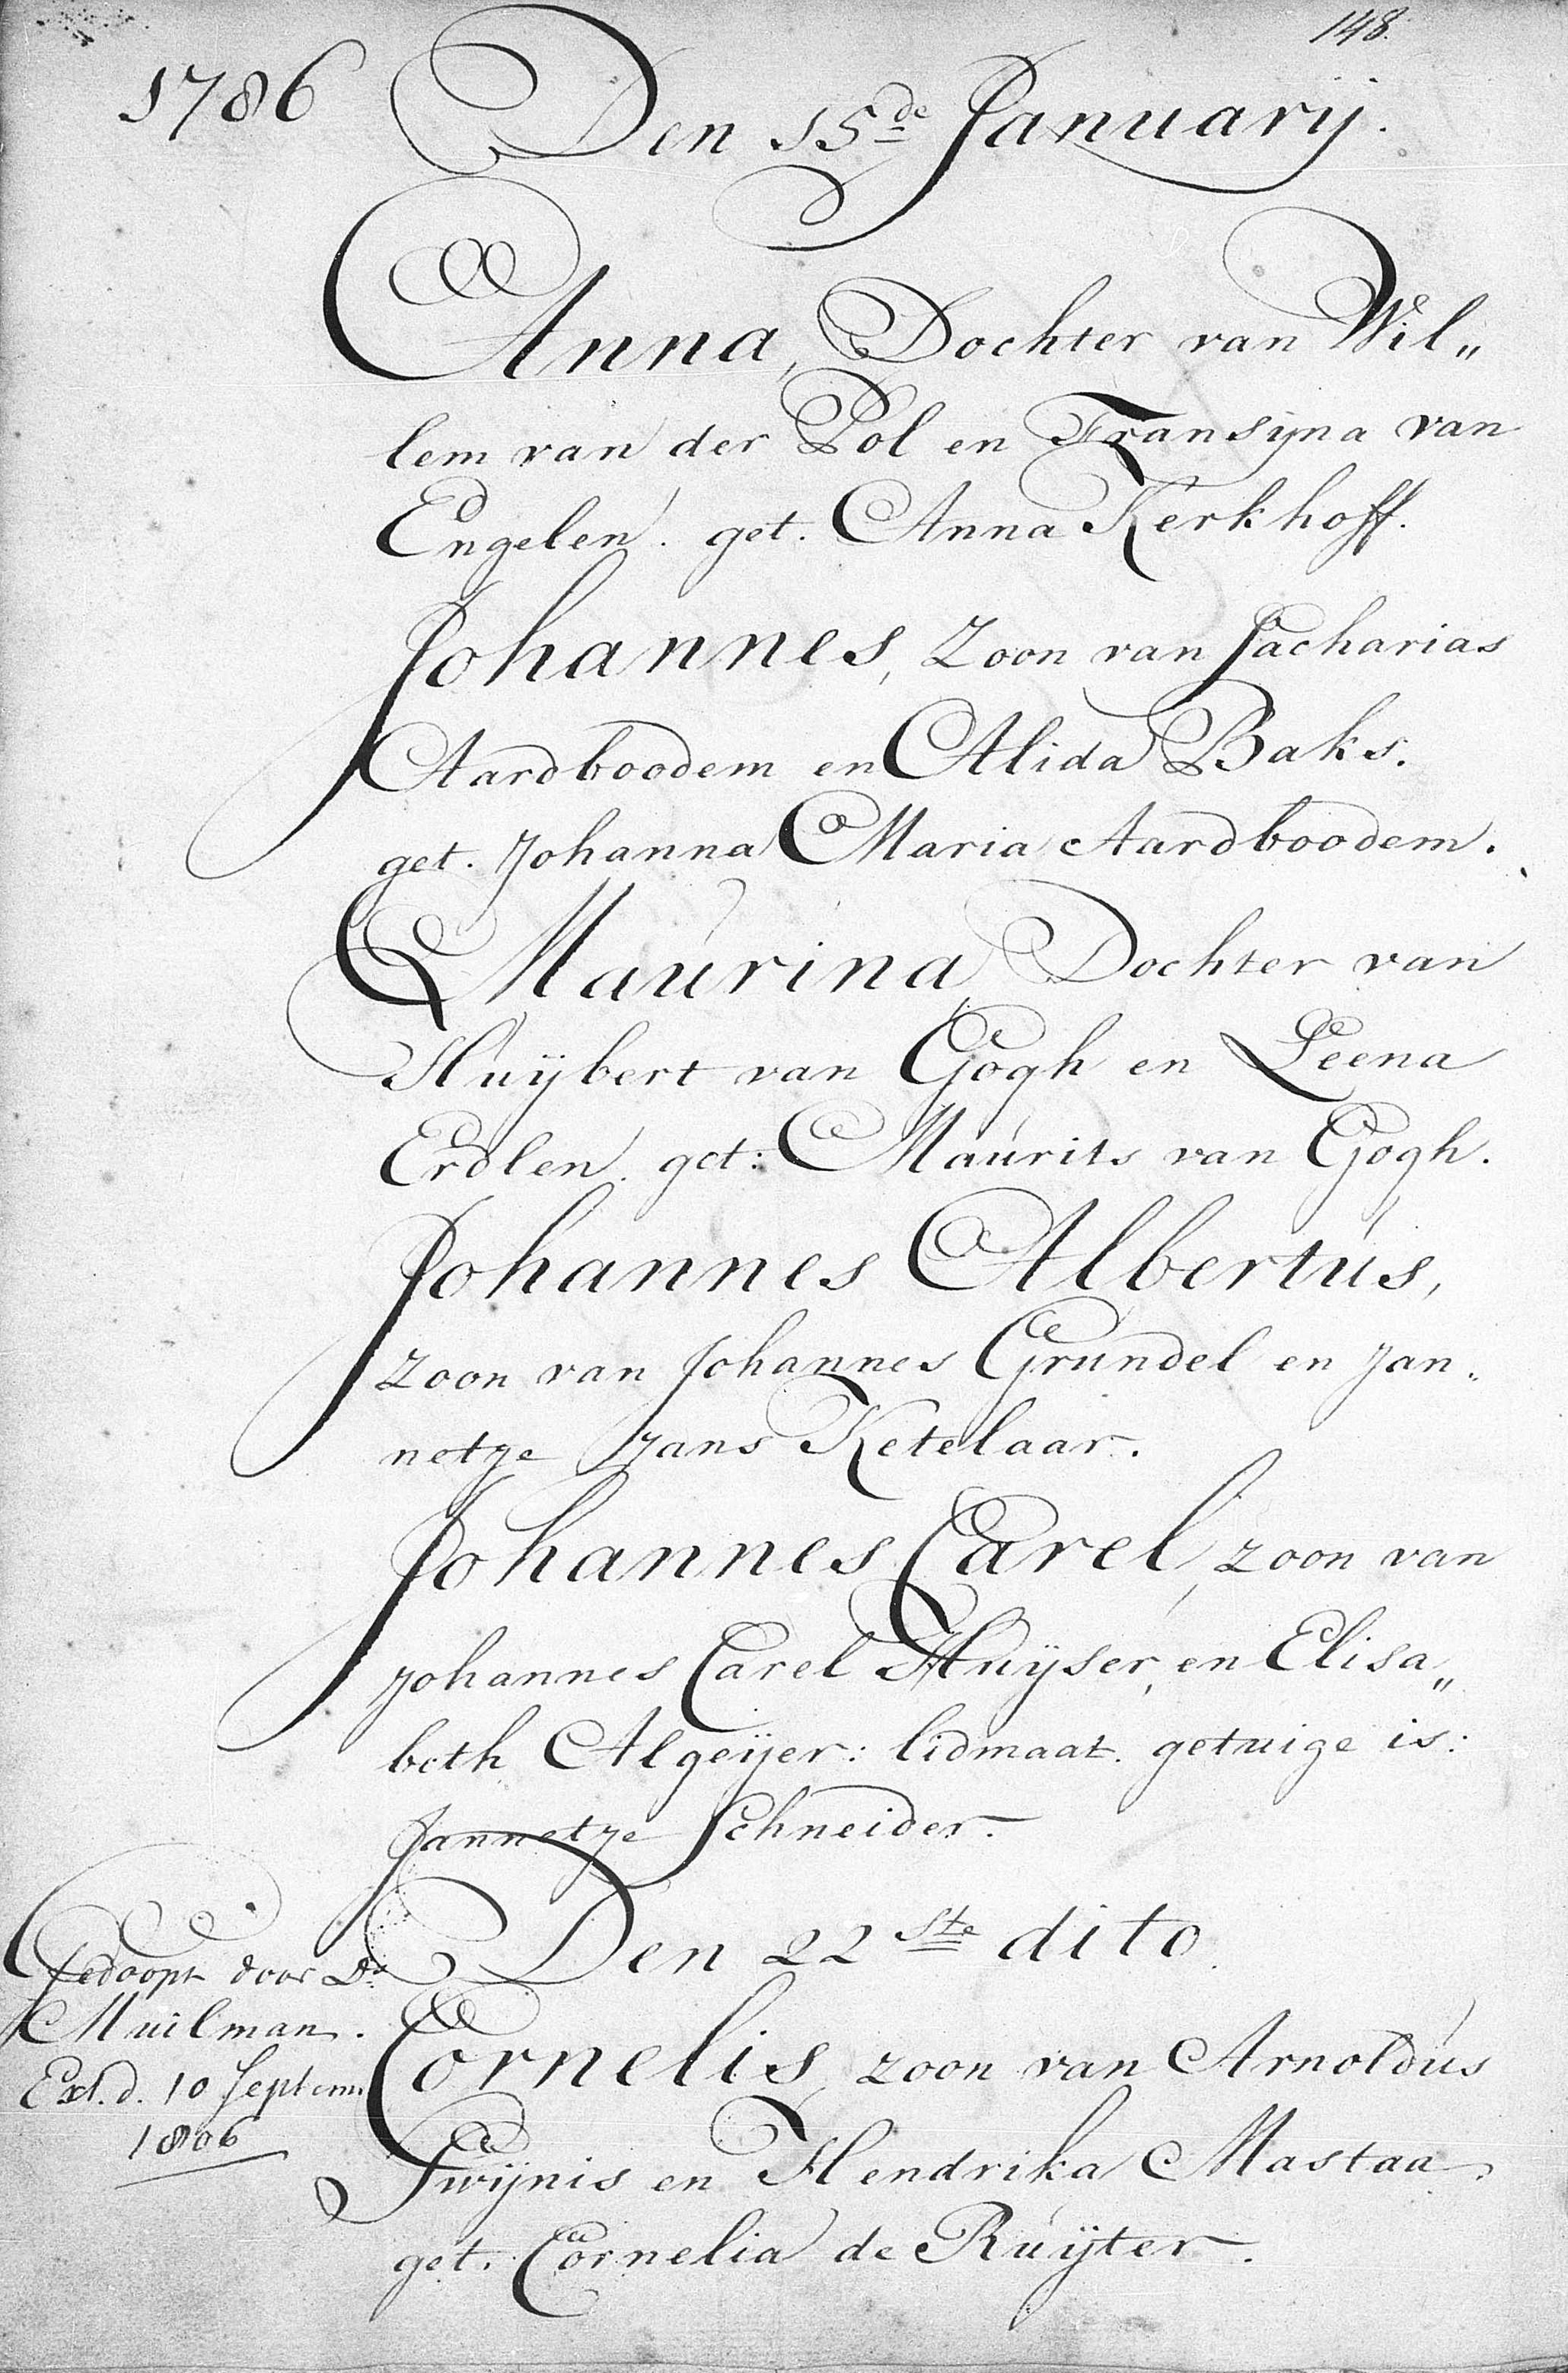 148.
1786
Den 15de Januarij.
Anna, Dochter van Wil„
lem van der Pol en Fransijna van
Engelen. get. Anna Kerkhoff.
Johannes, Zoon van Jacharias
Aardboodem en Alida Baks.
get. Johanna Maria Aardboodem.
Maurina Dochter van
Huijbert van Gogh en Leena
Erdlen. get: Maurits van Gogh.
Johannes Albertus,
zoon van Johannes Grundel en Jan„
netje Jans Ketelaar.
Johannes Carel, zoon van
Johannes Carel Huijser, en Elisa„
beth Algeijer: lidmaat. getuige is:
Jannetje Schneider.
Den 22ste dito.
Gedoopt door Ds
Muilman.
Ext. d. 10 Septem
1806
Cornelis, zoon van Arnoldus
Swijnis en Hendrika Mastaa
get. Cornelia de Ruijter.